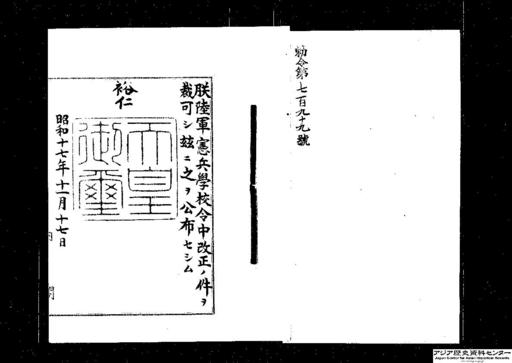 勅令第七百九十九號
朕陸軍憲兵學校令中改正ノ件ヲ
裁可シ玆ニ之ヲ公布セシム
裕仁
天皇御璽
昭和十七年十一月十七日
内閣
アジア歴史資料センター
Japan Center for Asian Historical Records